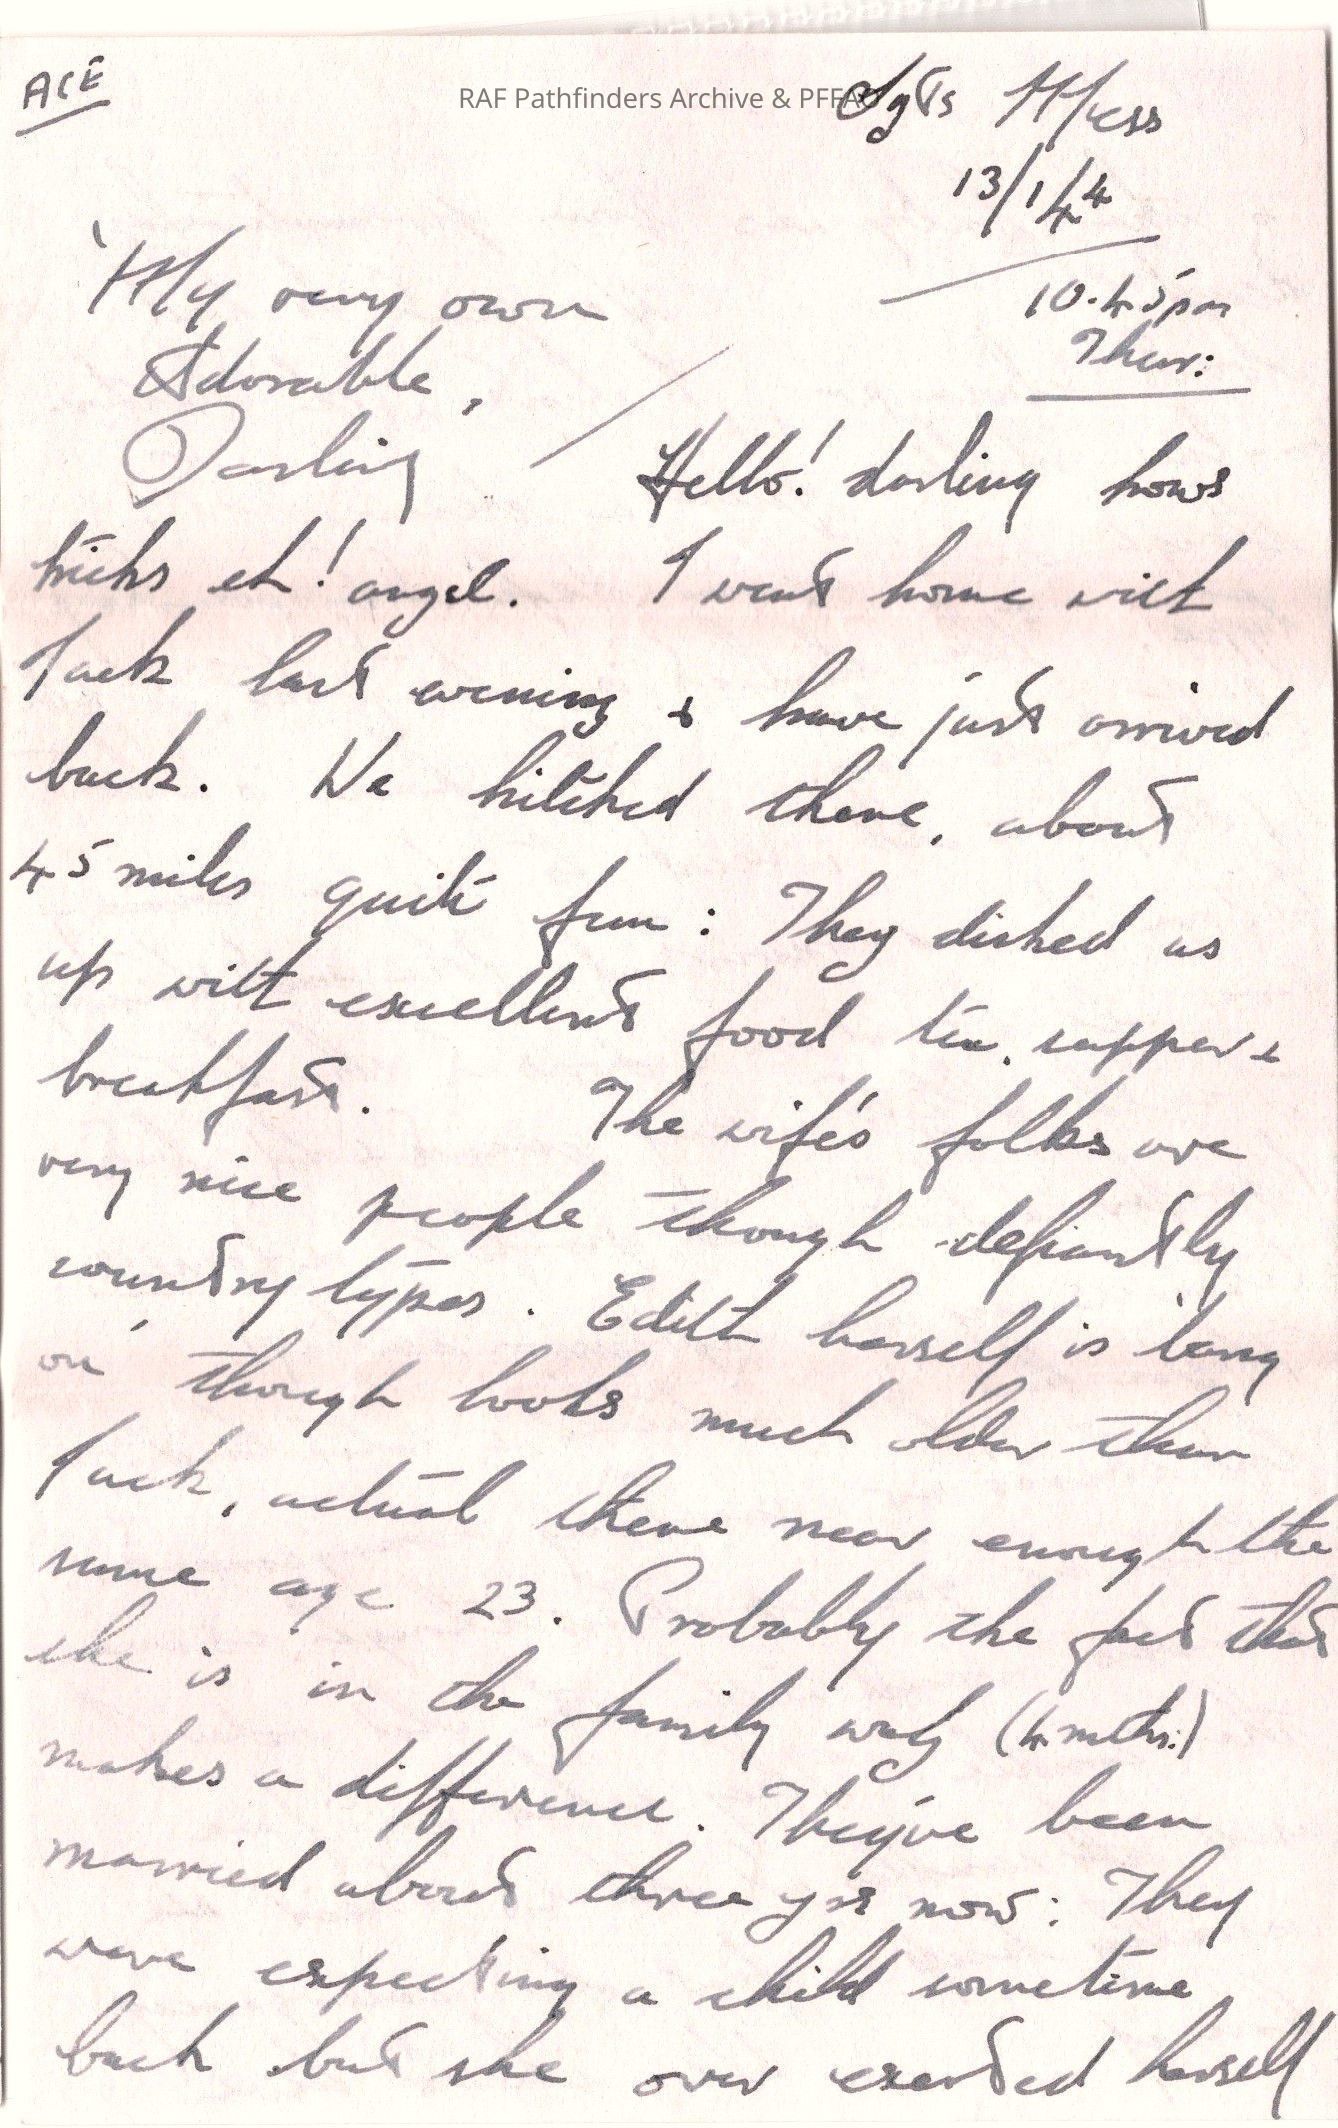 ACE
RAF Pathfinders Archive & PFFA
Sgts Mess
13/1/44
10.45pm
Thur:
'My very own
Adorable,
Darling
Hello! darling hows
tricks eh! angel. I went home with
Jack last evening & have just arrived
back. We hitched there, about
45 miles quite fun: They dished us
up with excellent food tea, supper &
breakfast. The wife's folks are
very nice people though defiantly
country types. Edith herself is 'bang
on' though looks much older than
Jack, actual there near enough the
same age 23. Probably the fact that
she is in the family way (4 mths:)
makes a difference. They've been
married about three yrs now: They
were expecting a child sometime
back but she over exerted herself